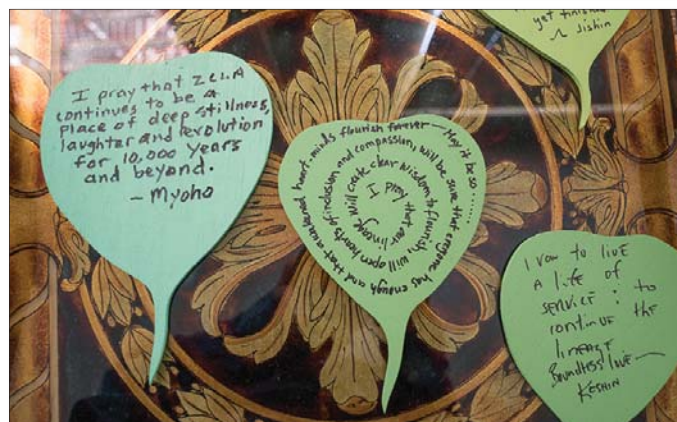 I pray that ZCLA
continues to be a
place of deep stillness,
laughter and revolution
for 10,000 years
and beyond.
– Myoho
I pray that our lineage will create clear wisdom to flourish, will open hearts of inclusion and compassion, will be sure that everyone has enough and that awakened heart-minds flourish forever — May it be so......
yet finished
~ Jishin
I vow to live
A life of
service : to
continue the
lineage
Boundless love —
Keshin